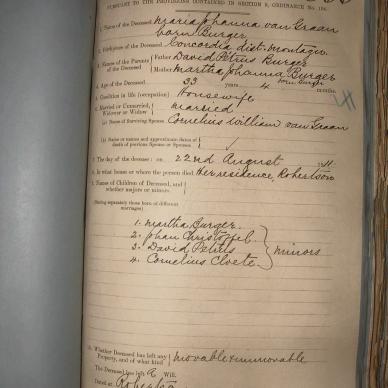 PURSUANT TO THE PROVISIONS CONTAINED IN SECTION 9, ORDINANCE No. 104.
1. Name of the Deceased Maria Johanna van Graan
born Burger
2. Birthplace of the Deceased Concordia dist: Montagu
3. Names of the Parents of the Deceased { Father David Petrus Burger
Mother Martha Johanna Burger
born Burger
4. Age of the Deceased 33 years 4 months
5. Condition in life (occupation) Housewife
6. Married or Unmarried, Widower or Widow } married
(a) Name of Surviving Spouse Cornelius William van Graan
(b) Name or names and approximate dates of death of previous Spouse or Spouses
7. The day of the decease: on 22nd August 1911.
8. In what house or where the person died Her residence, Robertson
9. Names of Children of Deceased, and whether majors or minors.
(Stating separately those born of different marriages)
1. Martha Burger.
2. Johan Christoffel.
3. David Petrus
4. Cornelius Cloete
} minors
10. Whether Deceased has left any Property, and of what kind } movable & immovable
The Deceased has left a Will.
Dated at Robertson